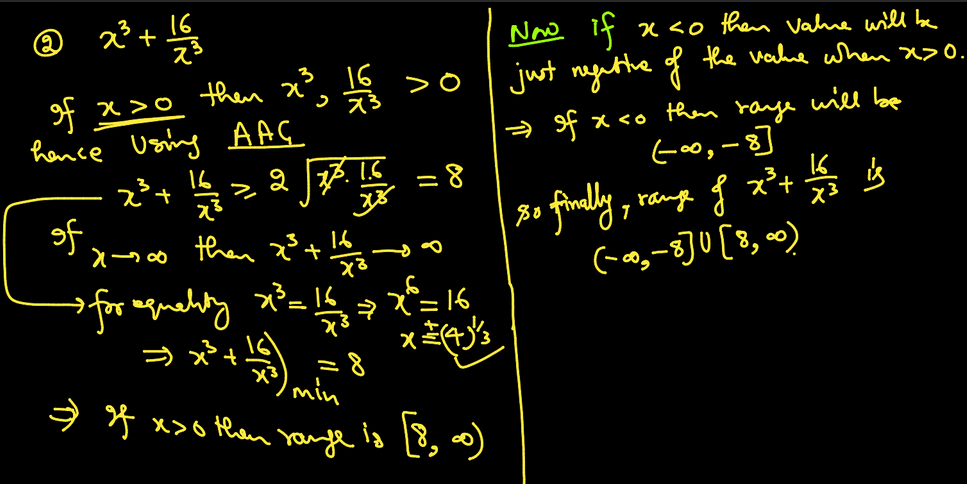 ② x³ + 16/x³
If x > 0 then x³, 16/x³ > 0
hence Using AAG
x³ + 16/x³ ≥ 2√(x³ · 16/x³) = 8
If x → ∞ then x³ + 16/x³ → ∞
→ for equality x³ = 16/x³ ⇒ x⁶ = 16
x = ±(4)^1/3
⇒ x³ + 16/x³)min = 8
⇒ If x > 0 then range is [8, ∞)
Now if x < 0 then value will be
just negative of the value when x > 0.
⇒ If x < 0 then range will be
(-∞, -8]
so finally, range of x³ + 16/x³ is
(-∞, -8] ∪ [8, ∞).